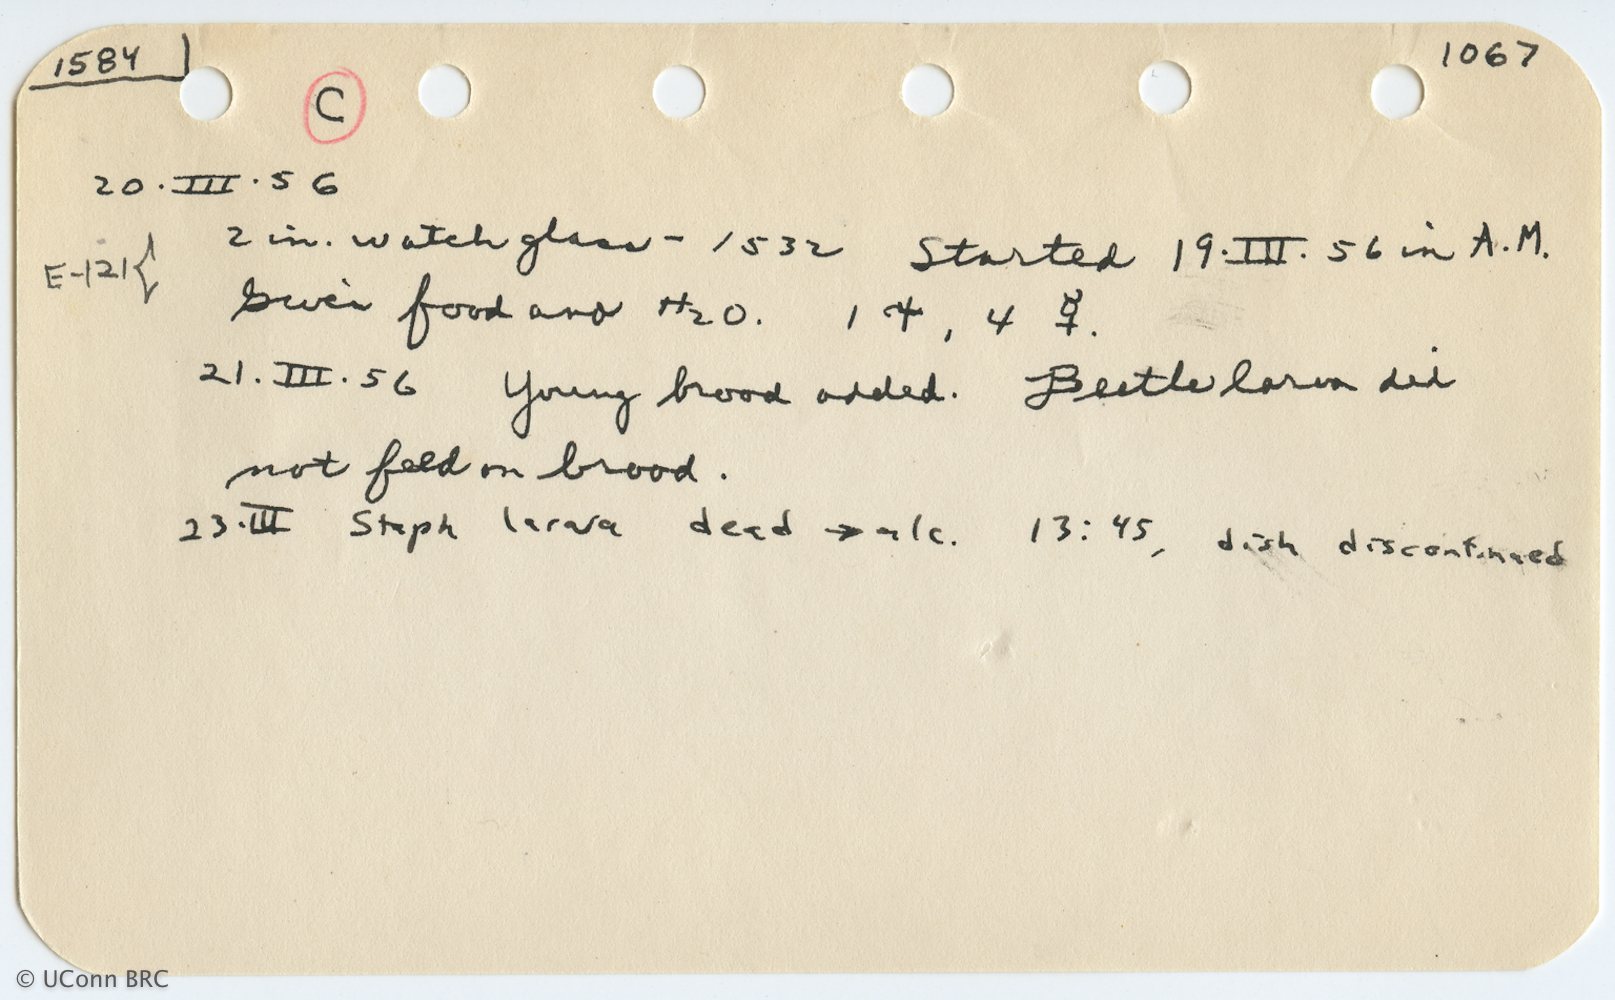 1584
1067
C
20.III.56
E-121{ 2 in. watch glass - 1532 Started 19.III.56 in A.M.
Given food and H2O. 1 4, 4 ☿.
21.III.56 Young brood added. Beetle larva did
not feed on brood.
23.III Staph larva dead → alc. 13:45, dish discontinued
© UConn BRC